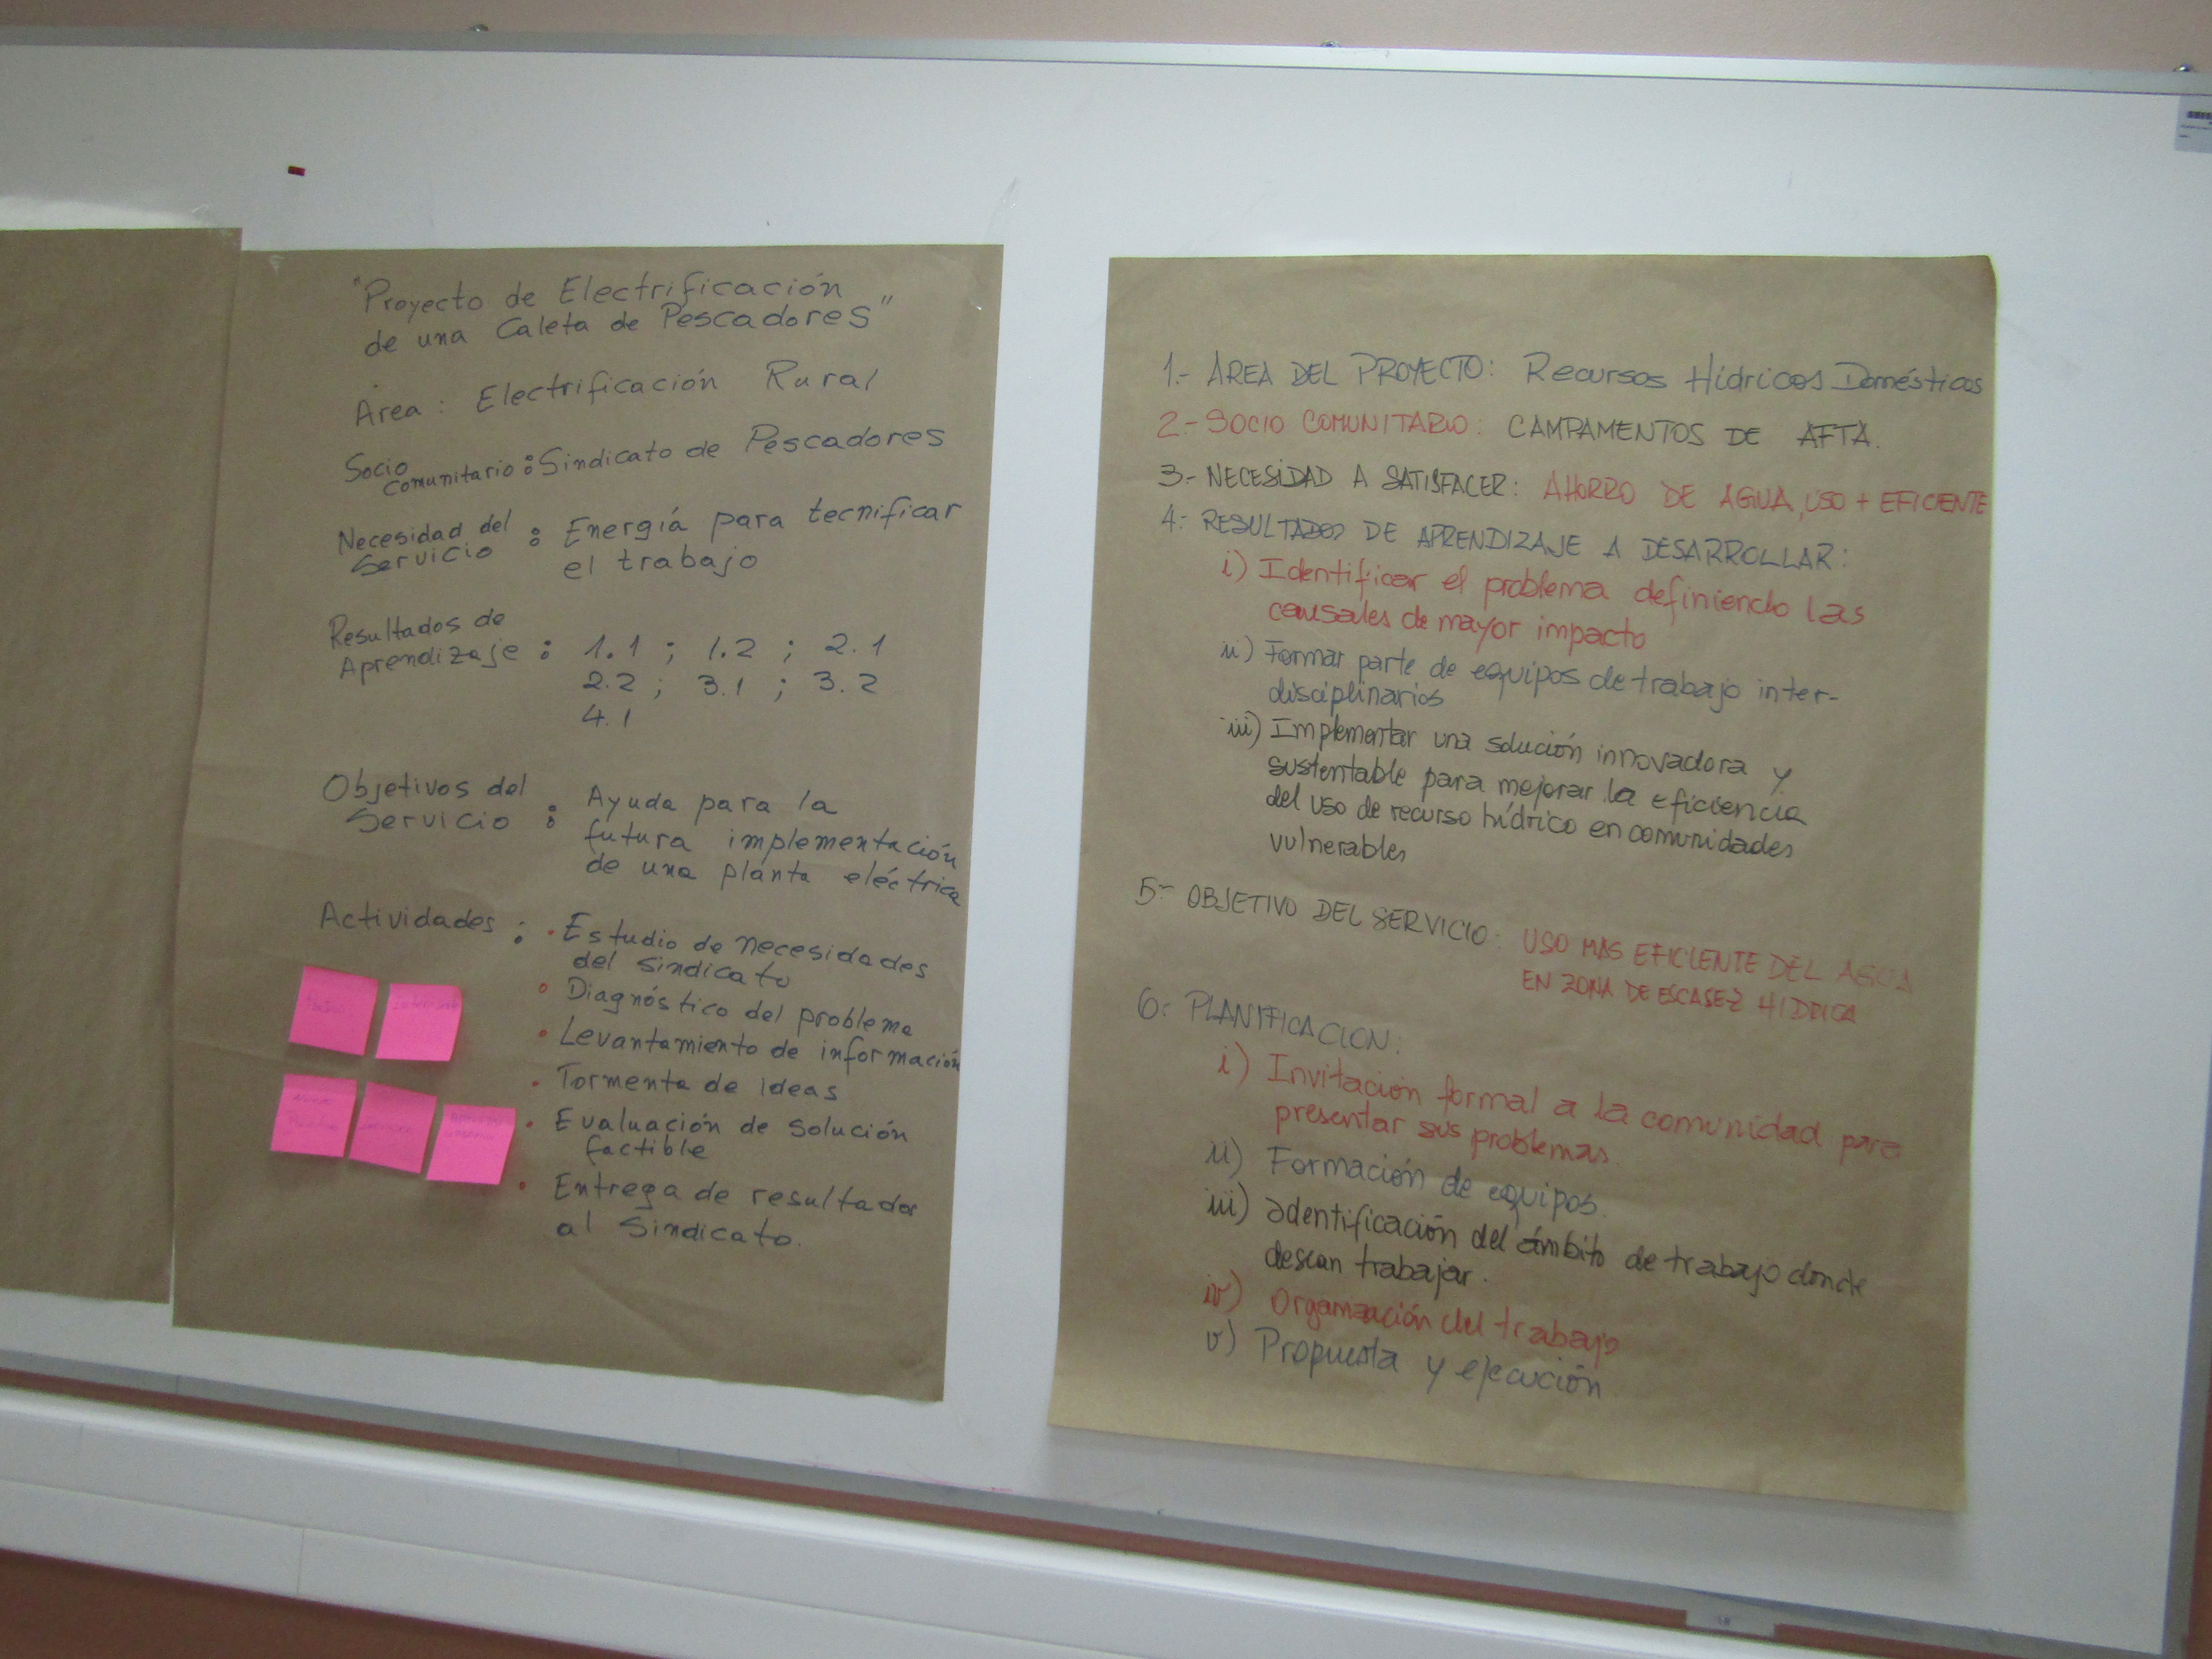 "Proyecto de Electrificación
de una Caleta de Pescadores"
Area : Electrificación Rural
Socio
comunitario : Sindicato de Pescadores
Necesidad del
Servicio : Energía para tecnificar
el trabajo
Resultados de
Aprendizaje : 1.1 ; 1.2 ; 2.1
2.2 ; 3.1 ; 3.2
4.1
Objetivos del
Servicio : Ayuda para la
futura implementación
de una planta eléctrica
Actividades : • Estudio de necesidades
del sindicato
• Diagnóstico del problema
• Levantamiento de información
• Tormenta de ideas
• Evaluación de solución
factible
• Entrega de resultados
al Sindicato.
1.- AREA DEL PROYECTO: Recursos Hídricos Domésticos
2.- SOCIO COMUNITARIO: CAMPAMENTOS DE AFTA.
3.- NECESIDAD A SATISFACER: AHORRO DE AGUA, USO + EFICIENTE
4.- RESULTADOS DE APRENDIZAJE A DESARROLLAR:
i) Identificar el problema definiendo las
causales de mayor impacto
ii) Formar parte de equipos de trabajo inter-
disciplinarios
iii) Implementar una solución innovadora y
sustentable para mejorar la eficiencia
del uso de recurso hídrico en comunidades
vulnerables
5.- OBJETIVO DEL SERVICIO: USO MAS EFICIENTE DEL AGUA
EN ZONA DE ESCASEZ HIDRICA
6.- PLANIFICACION:
i) Invitación formal a la comunidad para
presentar sus problemas.
ii) Formación de equipos.
iii) Identificación del ámbito de trabajo donde
desean trabajar.
iv) Organización del trabajo
v) Propuesta y ejecución